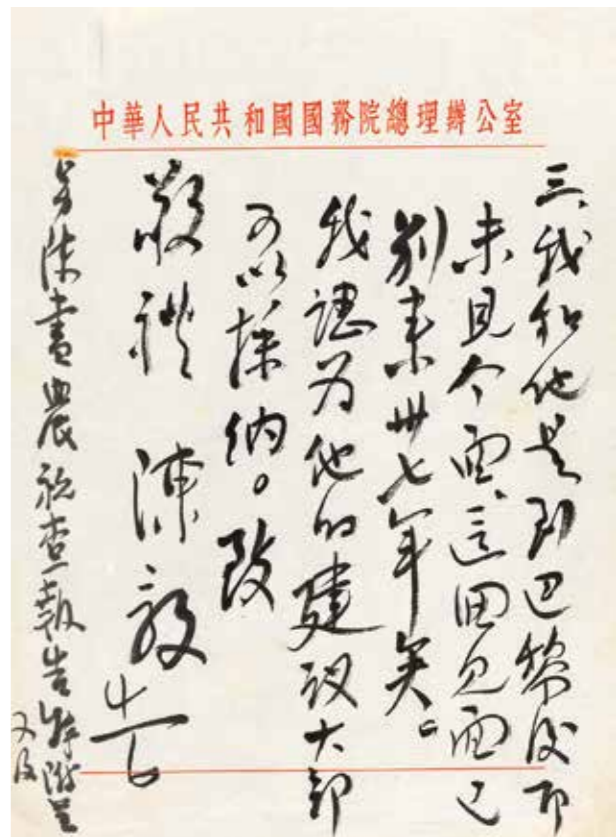 中華人民共和國國務院總理辦公室
三、我和他是到巴黎後即
未見个面、這回見面已
別来卅七年矣。
我認为他的建议大部
可以採納。致
敬禮 陳毅
另陳書農視查報告特附呈
又及